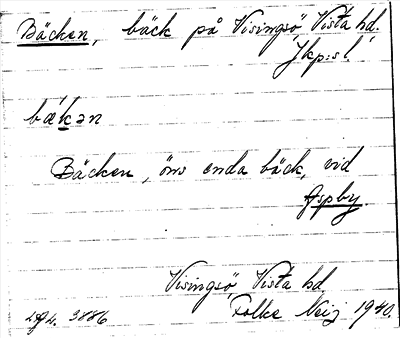 Bäcken, bäck på Visingsö, Vista hd.
Jkp:s l.
bækən
Bäcken, öns enda bäck, vid
Äspby.
Visingsö, Vista hd
3886 Folke Neij 1940.